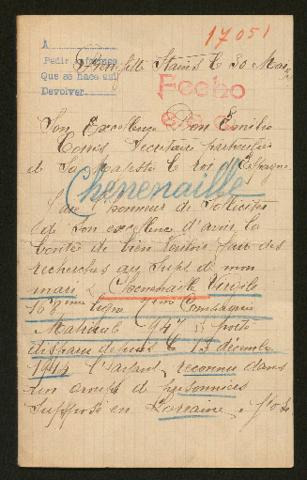 17051
A
Pedir informes
Que se hace aquí
Devolver
le 30 Mars
Fecho
Son Excellence Don Emilio
Torrès Secrétaire particulier
de Sa Majesté le roi d'Espagne
Chenenaille
J'ai l'honneur de solliciter
de son excellence d'avoir la
bonté de bien vouloir faire des
recherches au sujet de mon
mari Chenenaille Virgile
103ème ligne Compagnie
Matricule 947 porté
disparu depuis le 13 décembre
1914 l'ayant reconnu dans
un groupe de prisonniers
supposé en Lorraine